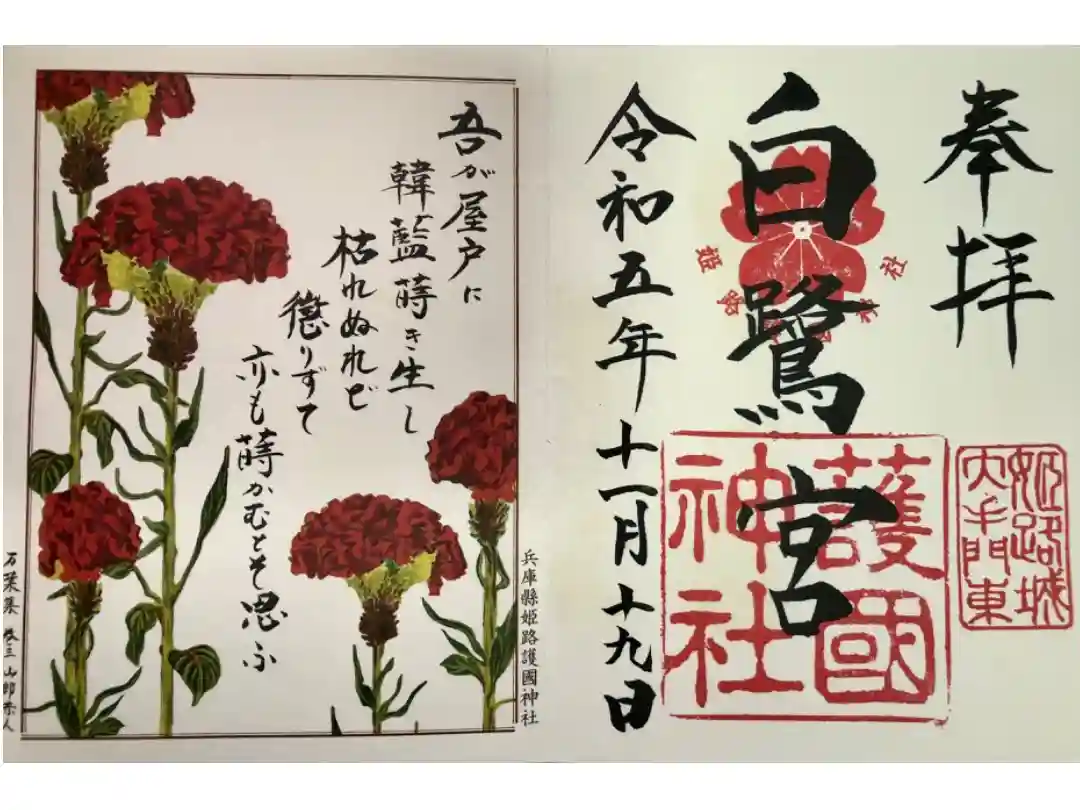 奉拝
白鷺宮
令和五年十一月十九日
姫路城
大手門東
護國
神社
吾が屋戸に
韓藍蒔き生し
枯れぬれど
懲りずて
亦も蒔かむとそ思ふ
兵庫縣姫路護國神社
万葉集 巻三 山部赤人